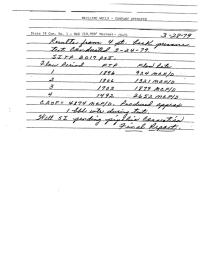 DRILLING WELLS - COMPANY OPERATED
State 14 Com. No. 1 -
3-28-79
Results from 4 pt. back pressure
test conducted 3-24-79.
SITP 2017 psi.
Flow Period FTP Flow Rate
1 1896 924 MCF/D
2 1806 1321 MCF/D
3 1702 1879 MCF/D
4 1492 2652 MCF/D
CAOF = 4274 MCF/D. Produced approx
1 bbl water during test.
Well SI pending pipeline connection
Final Report.